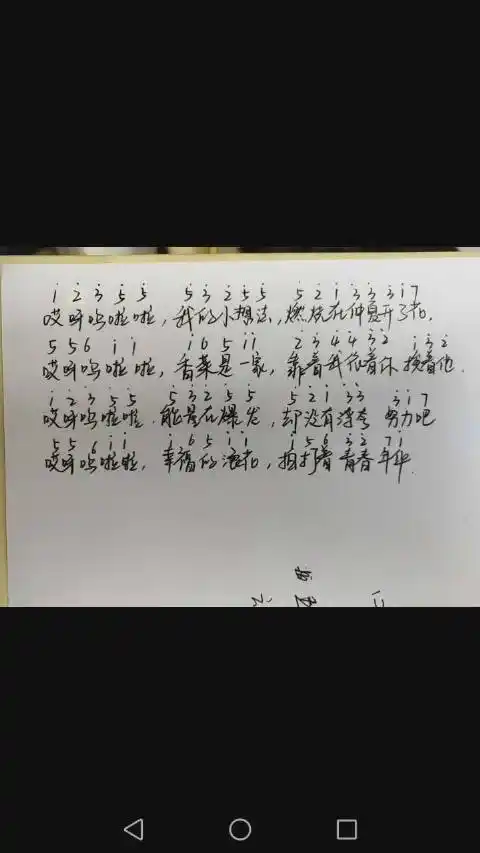 i 2̇ 3̇ 5̇ 5̇ 5̇ 3̇ 2̇ 5̇ 5̇ 5̇ 2̇ i 3̇ 3̇ 3̇ i 7
哎呀呜啦啦,我的小想法,燃放在仲夏开了花.
5 5 6 i i i 6 5 i i 2̇ 3̇ 4̇ 4̇ 3̇ 2̇ i 3̇ 2̇
哎呀呜啦啦,香菜是一家,靠着我依着你挨着他.
i 2̇ 3̇ 5̇ 5̇ 5̇ 3̇ 2̇ 5̇ 5̇ 5̇ 2̇ i 3̇ 3̇ 3̇ i 7
哎呀呜啦啦.能量在爆发,却没有浮夸 努力吧
5 5 6 i i i 6 5 i i i 5 6 3̇ 2̇ 7 i
哎呀呜啦啦,幸福的浪花,拍打着青春年华.